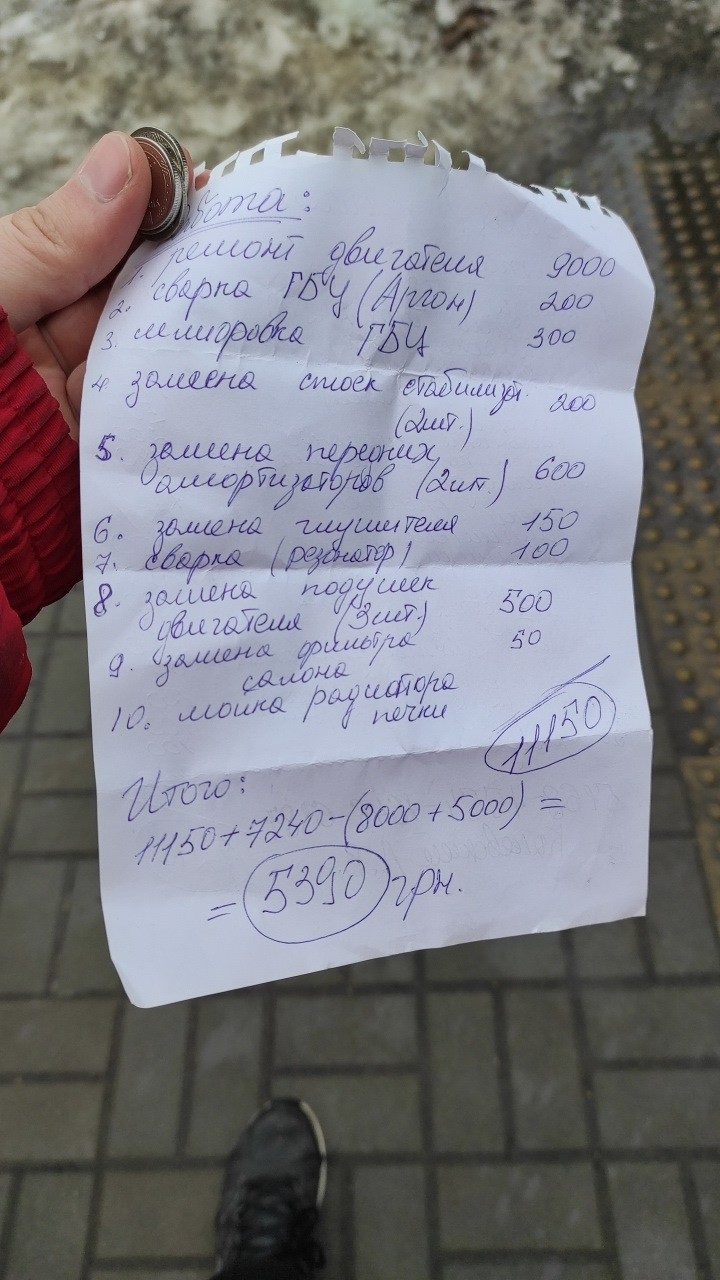 бота:
1. ремонт двигателя 9000
2. сварка ГБЦ (Аргон) 200
3. шлифовка ГБЦ 300
4 замена стоек стабилизат. (2шт.) 200
5. замена передних
амортизаторов (2шт.) 600
6. замена глушителя 150
7. сварка (резонатор) 100
8. замена подушек
двигателя (3шт.) 500
9. замена фильтра 50
салона
10. мойка радиатора
печки
11150
Итого:
11150+7240-(8000+5000) =
= 5390 грн.